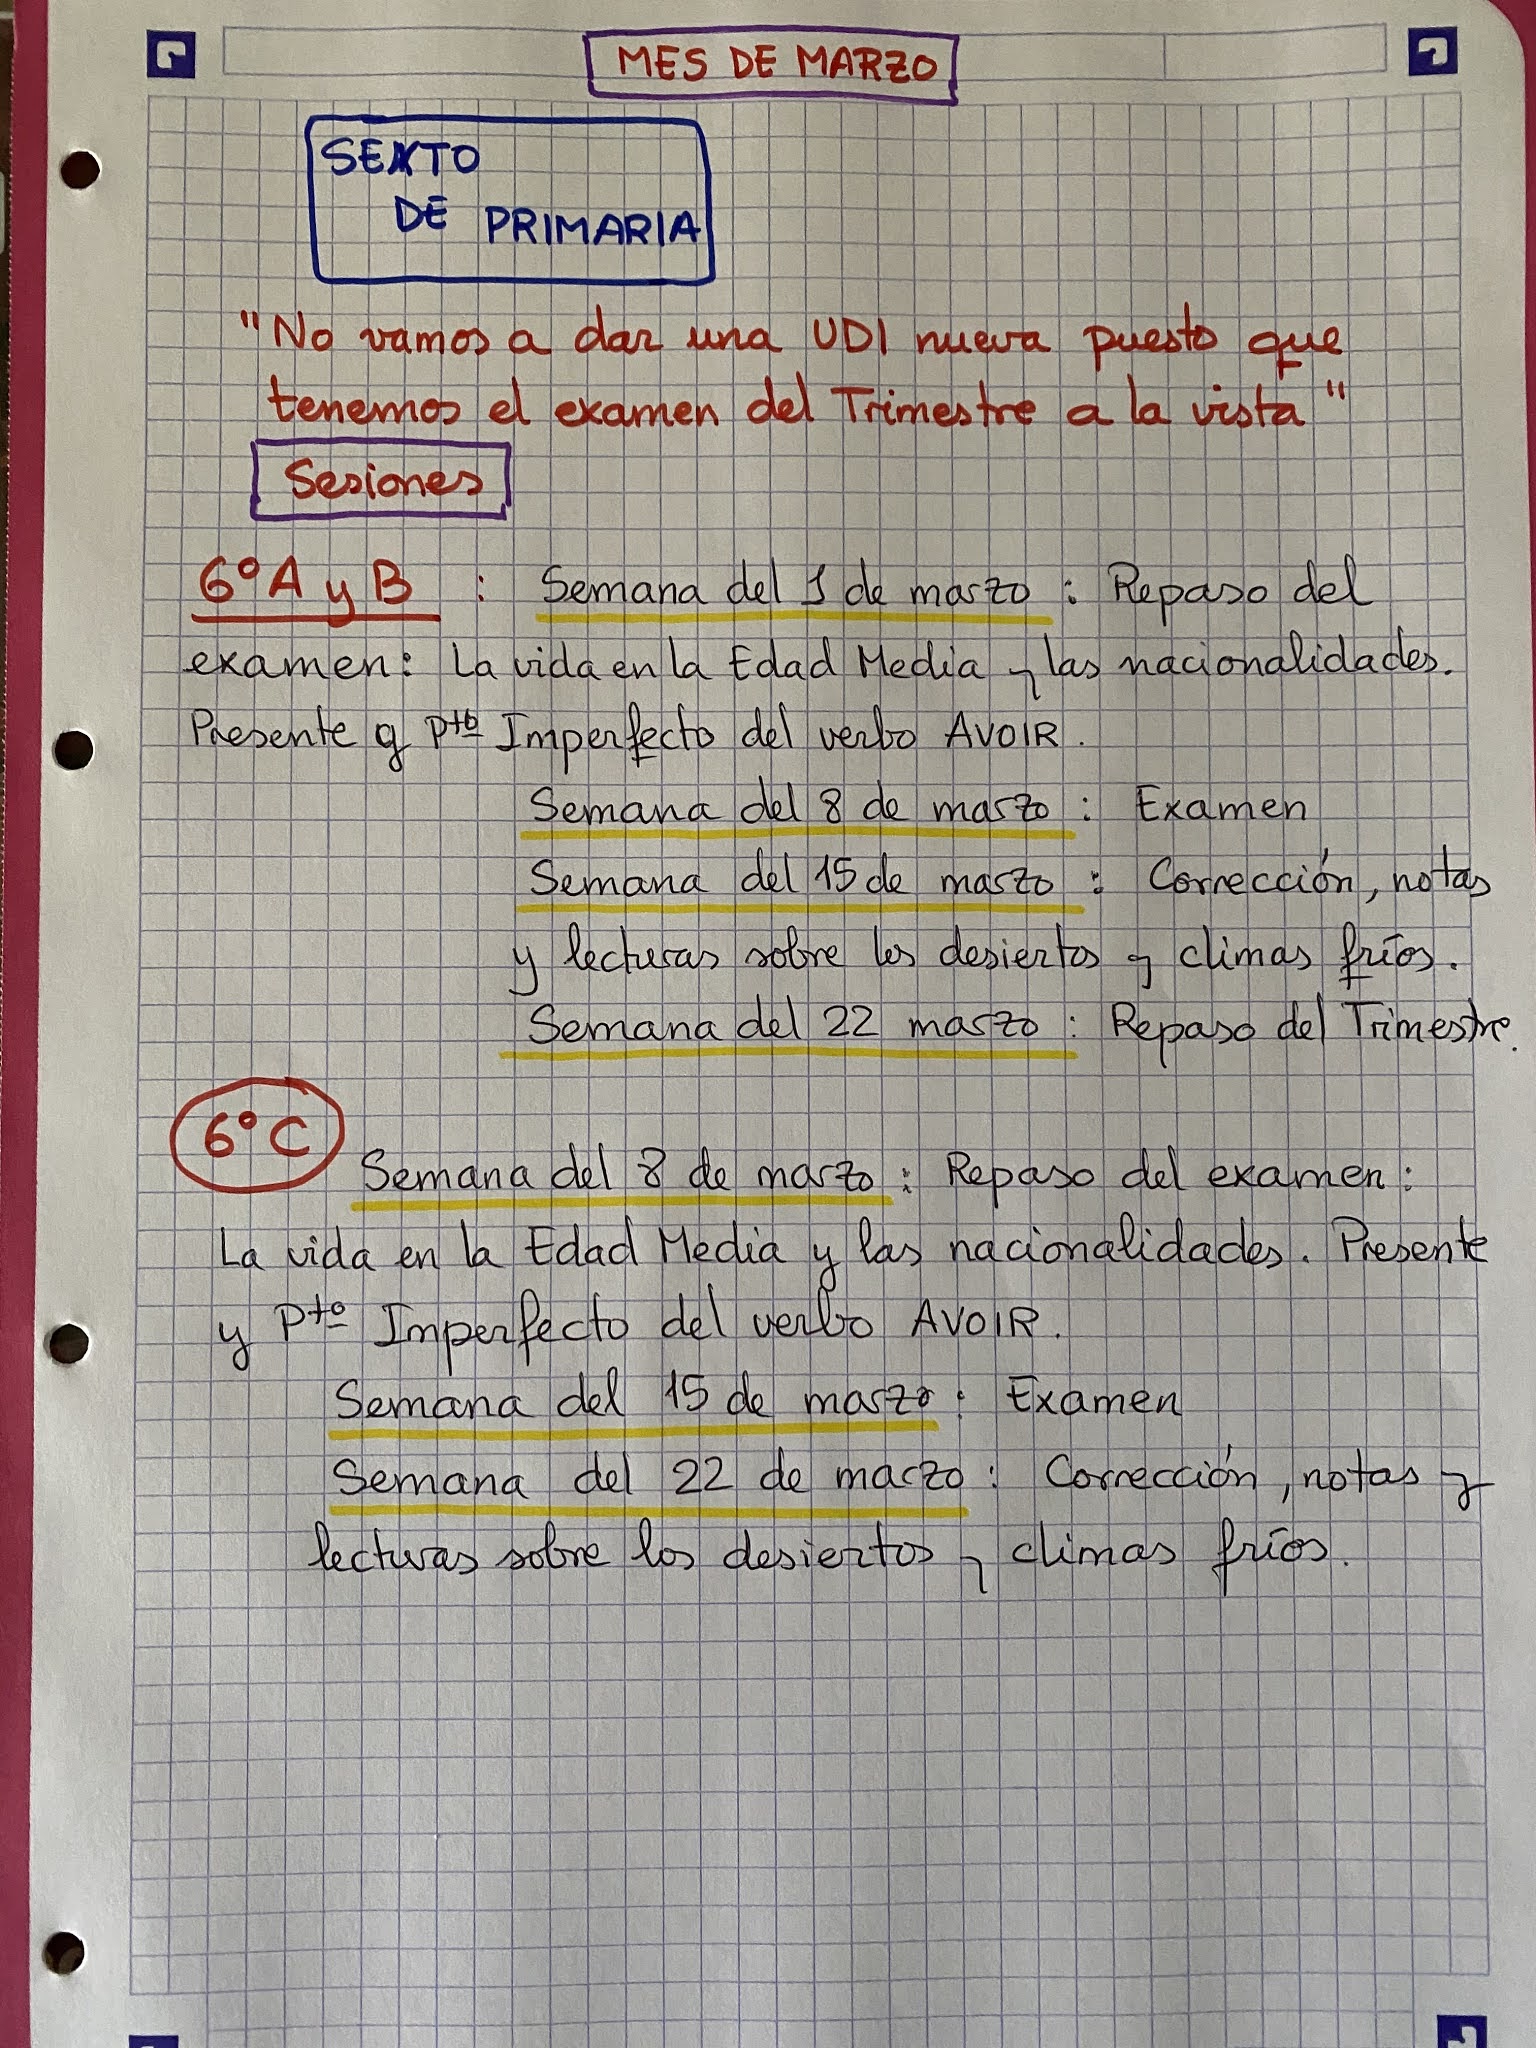 MES DE MARZO
SEXTO
DE PRIMARIA
"No vamos a dar una UDI nueva puesto que
tenemos el examen del Trimestre a la vista"
Sesiones
6º A y B : Semana del 1 de marzo : Repaso del
examen: La vida en la Edad Media y las nacionalidades.
Presente y Ptº Imperfecto del verbo AVOIR.
Semana del 8 de marzo : Examen
Semana del 15 de marzo : Corrección, notas
y lecturas sobre los desiertos y climas fríos.
Semana del 22 marzo : Repaso del Trimestre.
6º C
Semana del 8 de marzo : Repaso del examen :
La vida en la Edad Media y las nacionalidades. Presente
y Ptº Imperfecto del verbo AVOIR.
Semana del 15 de marzo : Examen
Semana del 22 de marzo : Corrección, notas y
lecturas sobre los desiertos y climas fríos.